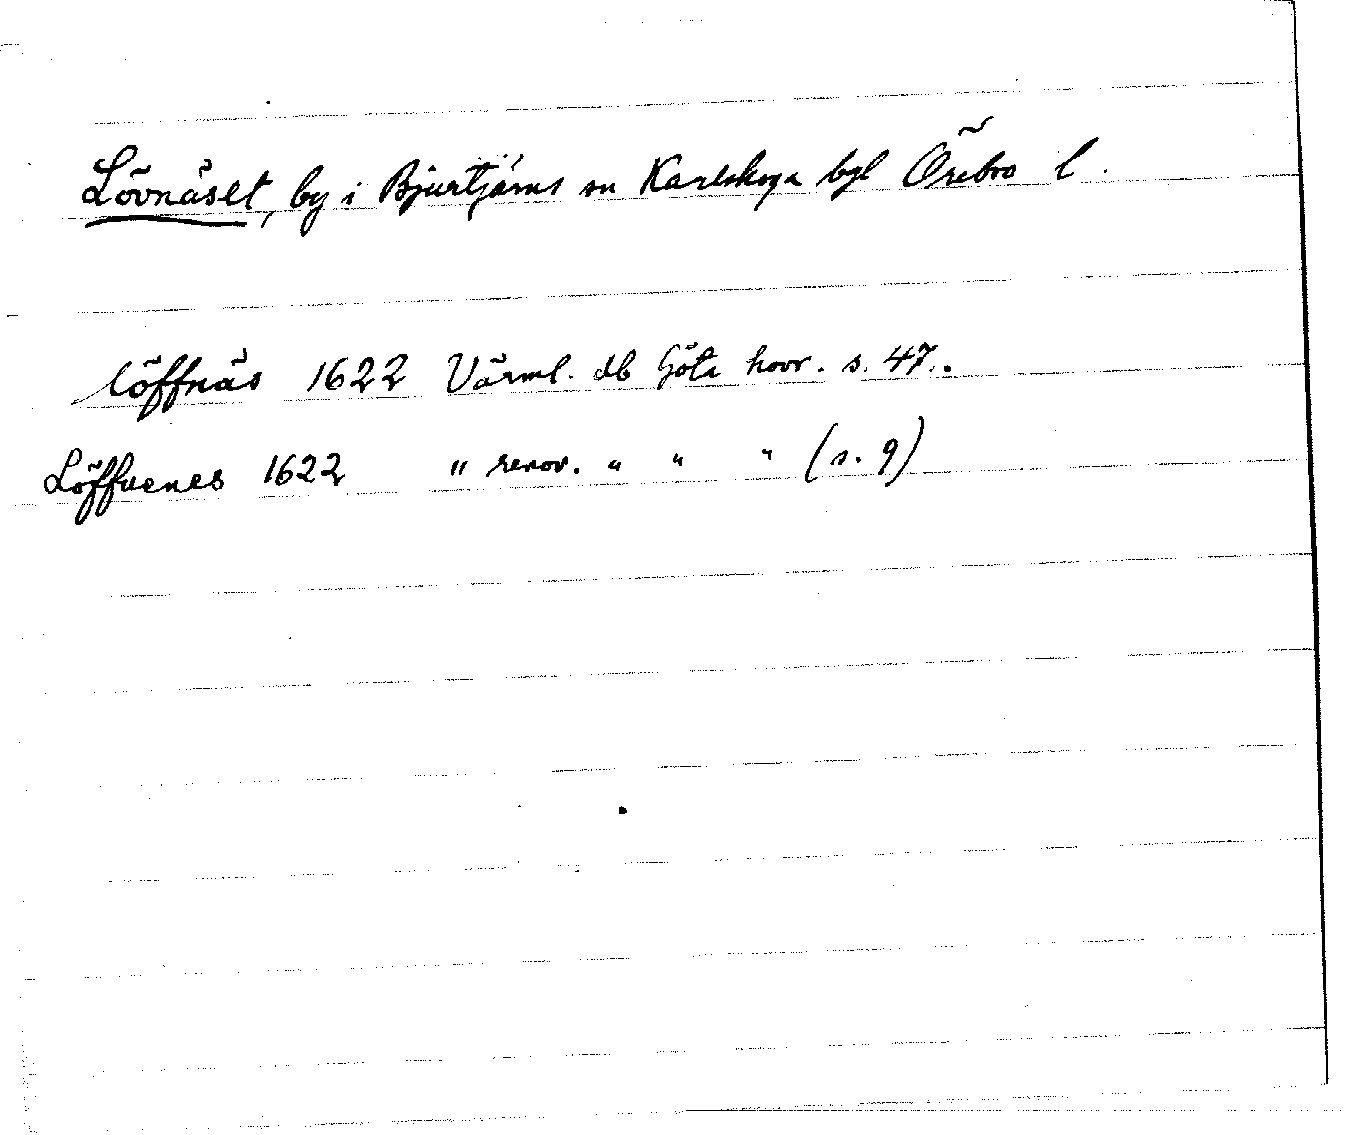 Lövnäset, by i Bjurtjärns sn Karlskoga bgl Örebro l.
löffnäs 1622 Värml. db Göta hovr. s. 47.
Löffuenes 1622 " renov. " " " (s. 9)